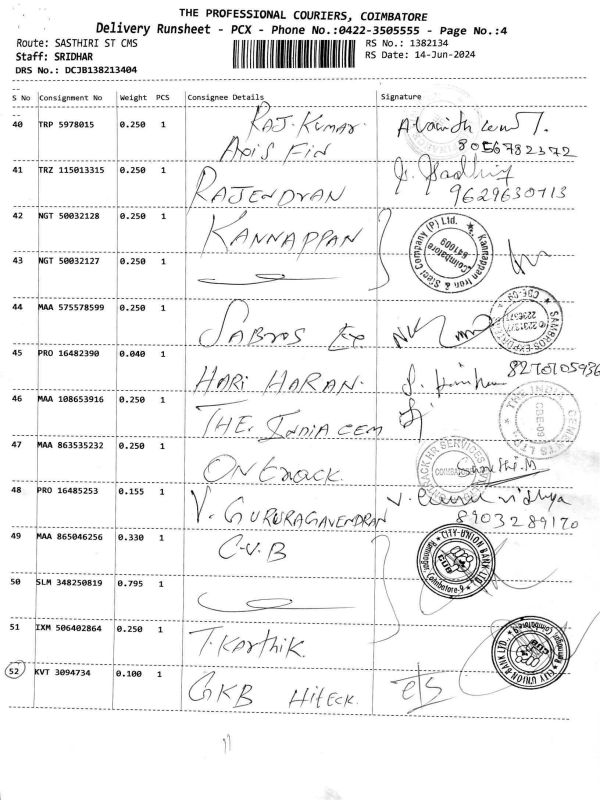 THE PROFESSIONAL COURIERS, COIMBATORE
Delivery Runsheet - PCX - Phone No.:0422-3505555 - Page No.:4
Route: SASTHIRI ST CMS
RS No.: 1382134
Staff: SRIDHAR
RS Date: 14-Jun-2024
DRS No.: DCJB138213404
S No Consignment No Weight PCS Consignee Details Signature
40 TRP 5978015 0.250 1 RAJ.KUMAR.
Axis Fin
8056782372
41 TRZ 115013315 0.250 1 RAJENDRAN
9629630713
42 NGT 50032128 0.250 1 KANNAPPAN
Kannappan Iron & Steel Company (P) Ltd.
Coimbatore
641009
43 NGT 50032127 0.250 1
44 MAA 575578599 0.250 1 SABROS EX
45 PRO 16482390 0.040 1 HARI HARAN.
46 MAA 108653916 0.250 1 THE. INDIA CEM
THE INDIA CEMENTS LTD
CBE-09
47 MAA 863535232 0.250 1 ONTRACK.
ONTRACK HR SERVICES
48 PRO 16485253 0.155 1 V. GURURAGAVENDRAN
8903289170
49 MAA 865046256 0.330 1 C.U.B
CITY UNION BANK LTD.
Ramnagar, Coimbatore-9
CUB
50 SLM 348250819 0.795 1
51 IXM 506402864 0.250 1 T.Karthik.
52 KVT 3094734 0.100 1 GKB Hiteck.
CITY UNION BANK LTD.
Ramnagar, Coimbatore-9
CUB